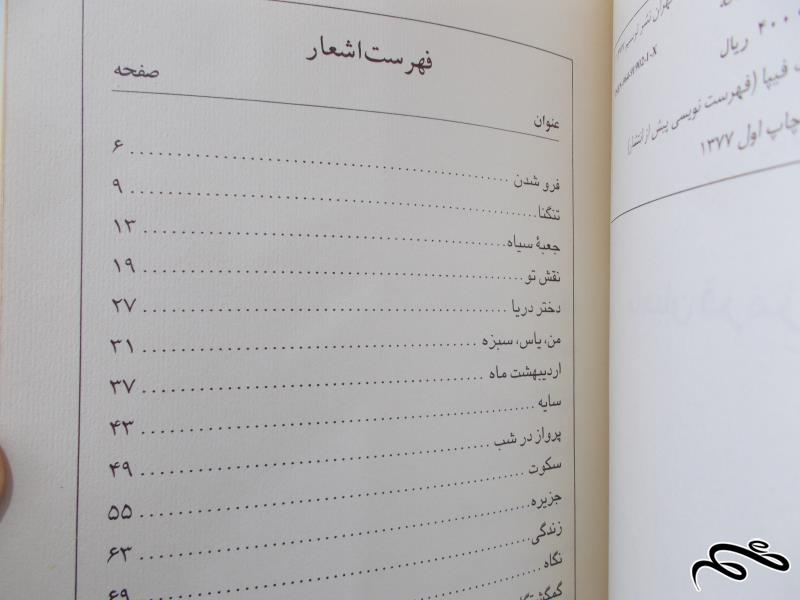 ۴۰۰ ریال
فیپا (فهرست نویسی پیش از انتشار)
چاپ اول ۱۳۷۷
فهرست اشعار
عنوان صفحه
فرو شدن ........ ۶
تنگنا ........ ۹
جعبهٔ سیاه ........ ۱۳
نقش تو ........ ۱۹
دختر دریا ........ ۲۷
من، یاس، سبزه ........ ۳۱
اردیبهشت ماه ........ ۳۷
سایه ........ ۴۳
پرواز در شب ........ ۴۹
سکوت ........ ۵۵
جزیره ........ ۶۳
زندگی ........ ۶۹
نگاه